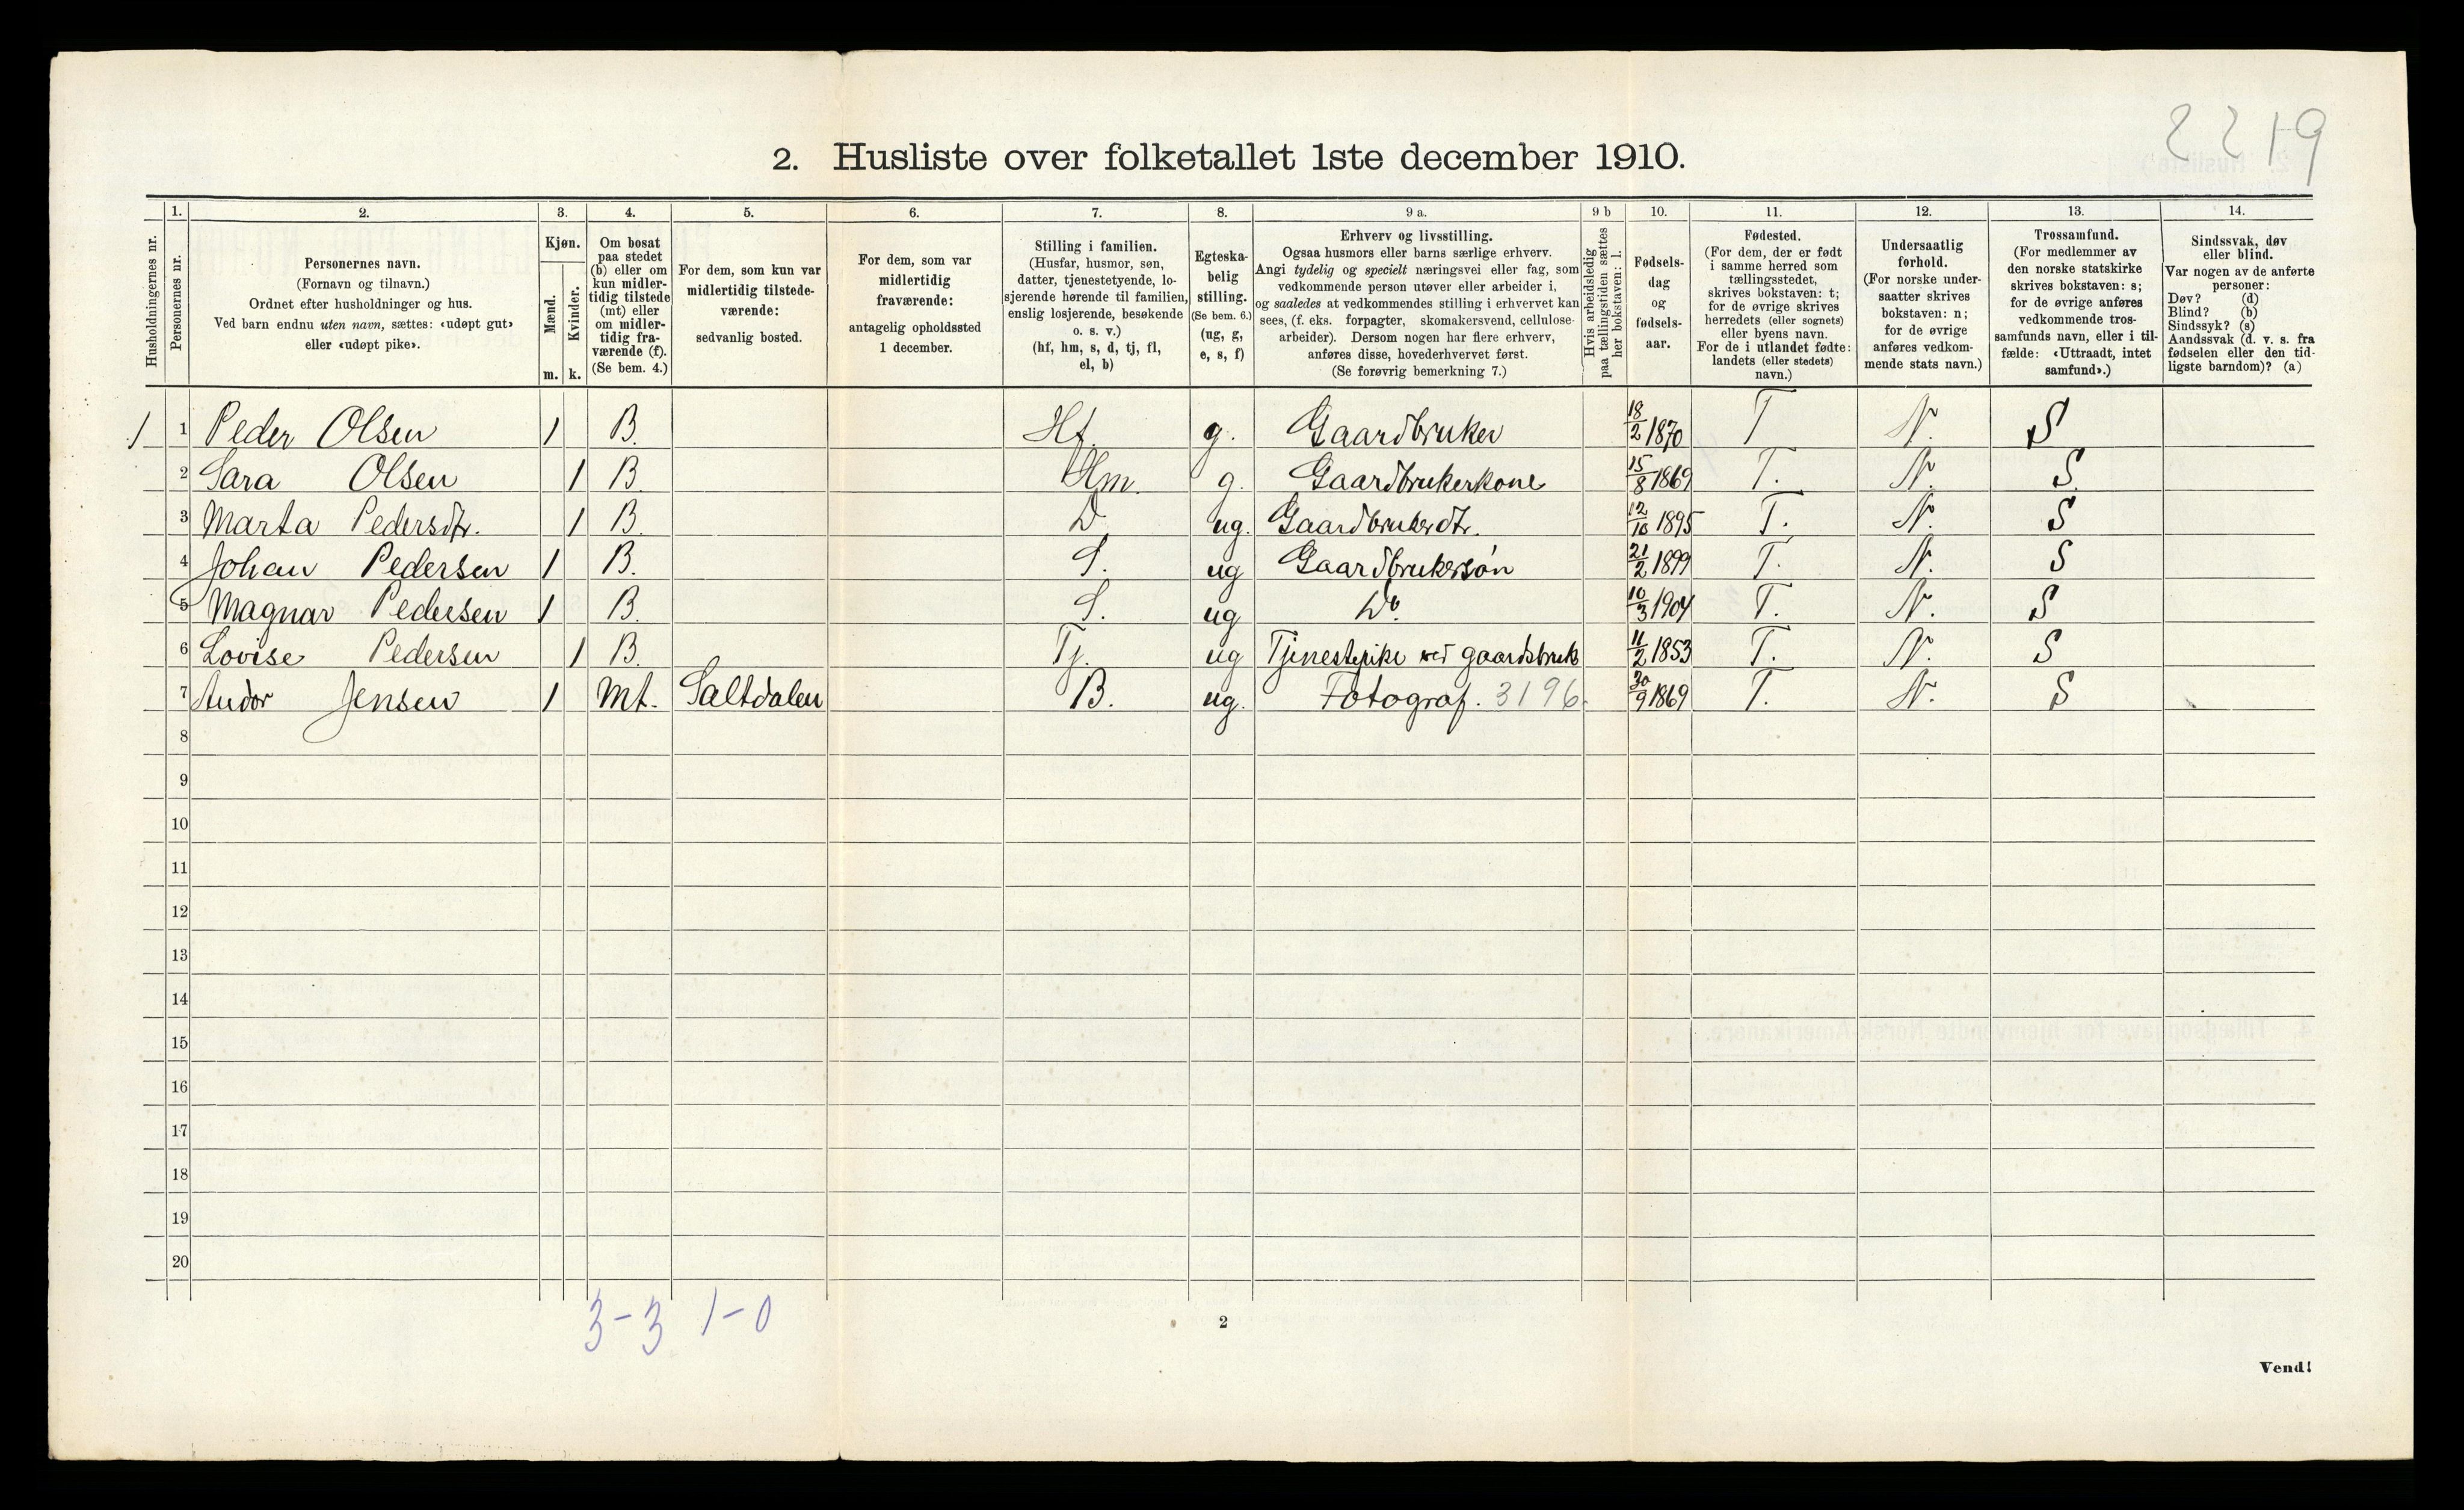 2219
2. Husliste over folketallet 1ste december 1910.
1. 2. 3. 4. 5. 6. 7. 8. 9 a. 9 b 10. 11. 12. 13. 14.
Husholdningernes nr.
Personernes nr.
Personernes navn.
(Fornavn og tilnavn.)
Ordnet efter husholdninger og hus.
Ved barn endnu uten navn, sættes: «udøpt gut»
eller «udøpt pike».
Kjøn.
Mænd.
Kvinder.
m. k.
Om bosat
paa stedet
(b) eller om
kun midler-
tidig tilstede
(mt) eller
om midler-
tidig fra-
værende (f).
(Se bem. 4.)
For dem, som kun var
midlertidig tilstede-
værende:
sedvanlig bosted.
For dem, som var
midlertidig
fraværende:
antagelig opholdssted
1 december.
Stilling i familien.
(Husfar, husmor, søn,
datter, tjenestetyende, lo-
sjerende hørende til familien,
enslig losjerende, besøkende
o. s. v.)
(hf, hm, s, d, tj, fl,
el, b)
Egteska-
belig
stilling.
(Se bem. 6.)
(ug, g,
e, s, f)
Erhverv og livsstilling.
Ogsaa husmors eller barns særlige erhverv.
Angi tydelig og specielt næringsvei eller fag, som
vedkommende person utøver eller arbeider i,
og saaledes at vedkommendes stilling i erhvervet kan
sees, (f. eks. forpagter, skomakersvend, cellulose-
arbeider). Dersom nogen har flere erhverv,
anføres disse, hovederhvervet først.
(Se forøvrig bemerkning 7.)
Hvis arbeidsledig
paa tællingstiden sættes
her bokstaven: l.
Fødsels-
dag
og
fødsels-
aar.
Fødested.
(For dem, der er født
i samme herred som
tællingsstedet,
skrives bokstaven: t;
for de øvrige skrives
herredets (eller sognets)
eller byens navn.
For de i utlandet fødte:
landets (eller stedets)
navn.)
Undersaatlig
forhold.
(For norske under-
saatter skrives
bokstaven: n;
for de øvrige
anføres vedkom-
mende stats navn.)
Trossamfund.
(For medlemmer av
den norske statskirke
skrives bokstaven: s;
for de øvrige anføres
vedkommende tros-
samfunds navn, eller i til-
fælde: «Uttraadt, intet
samfund».)
Sindssvak, døv
eller blind.
Var nogen av de anførte
personer:
Døv? (d)
Blind? (b)
Sindssyk? (s)
Aandssvak (d. v. s. fra
fødselen eller den tid-
ligste barndom)? (a)
1 1 Peder Olsen 1 B. Hf. g. Gaardbruker 18/2 1870 T N. S
2 Sara Olsen 1 B. Hm. g. Gaardbrukerkone 15/8 1869 T. N. S.
3 Marta Pedersdtr. 1 B. D ug. Gaardbrukerdtr. 12/10 1895 T. N. S
4 Johan Pedersen 1 B. S. ug Gaardbrukersøn 21/2 1899 T. N. S
5 Magnar Pedersen 1 B. S. ug Do. 10/3 1904 T. N. S
6 Lovise Pedersen 1 B. Tj. ug Tjenestepike ved gaardsbruk 11/2 1853 T. N. S
7 Andor Jensen 1 Mt. Saltdalen B. ug. Fotograf. 3196. 30/9 1869 T. N. S
8
9
10
11
12
13
14
15
16
17
18
19
20
3-3 1-0
2
Vend!